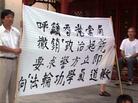 呼籲香港當局
撤銷政治起訴
要求警方立即
向法輪功學員道歉